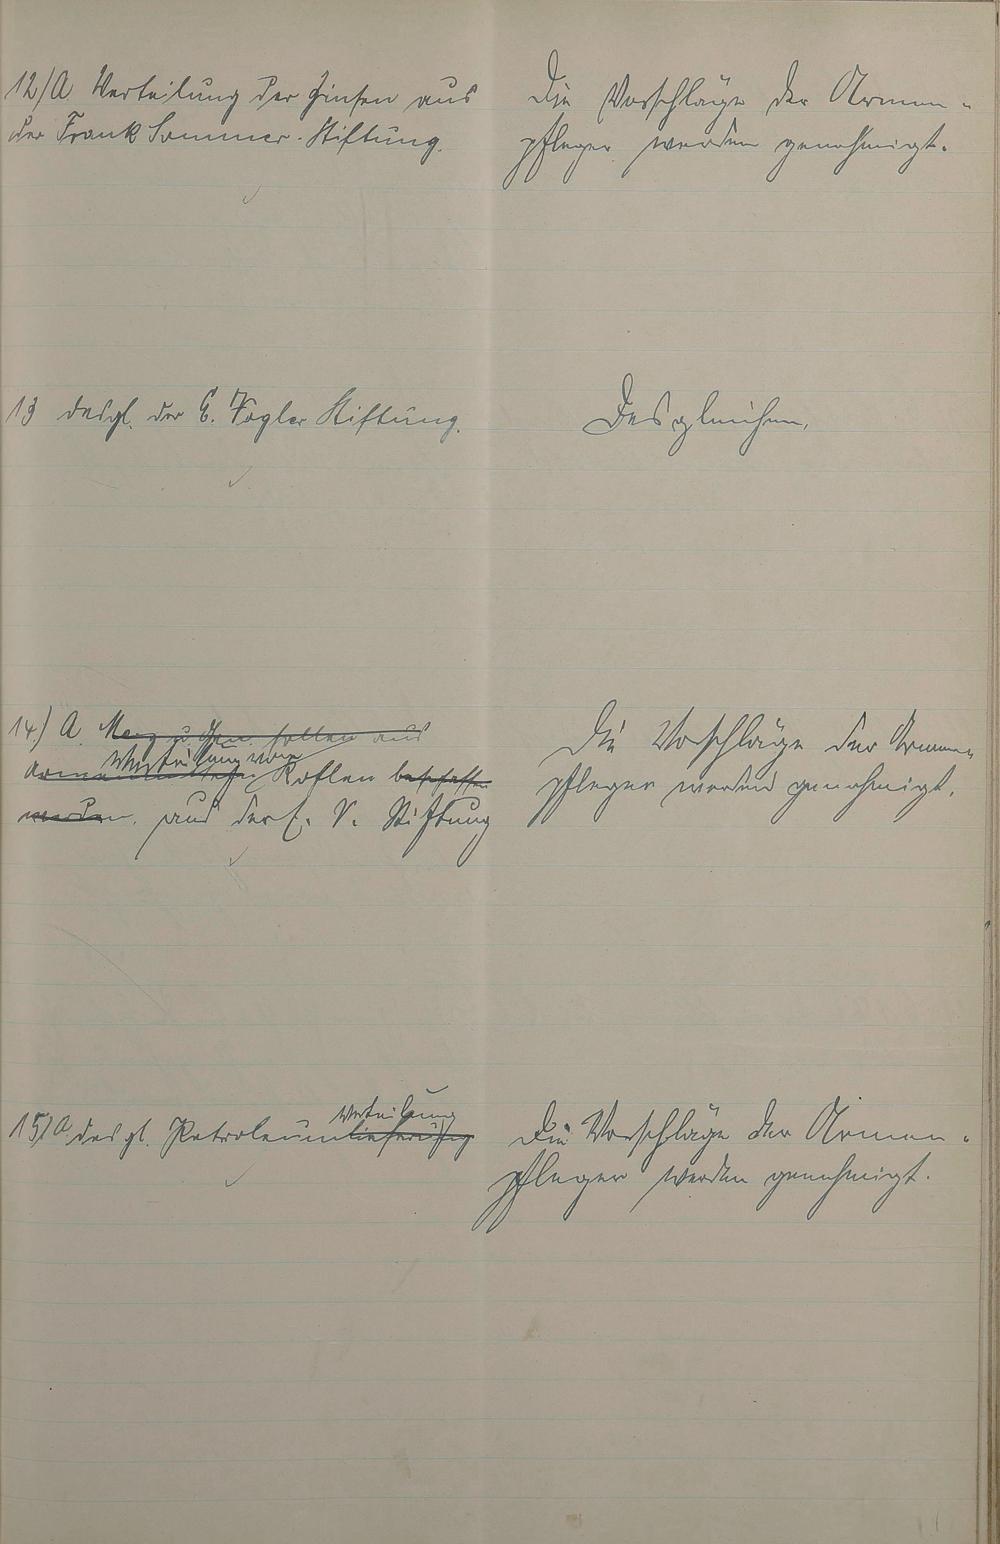 12/A Verteilung der Zinsen aus
der Frank Sommer-Stiftung.
Die Vorschläge der Armen-
pfleger werden genehmigt.
13 desgl. der E. Vogler Stiftung.
Desgleichen.
14) A. sollen aus
Verteilung von
Kohlen beschafft
werden. aus der E. V. Stiftung
Die Vorschläge der Armen-
pfleger werden genehmigt.
Verteilung
15/A. desgl. Petroleumlieferung
Die Vorschläge der Armen-
pfleger werden genehmigt.